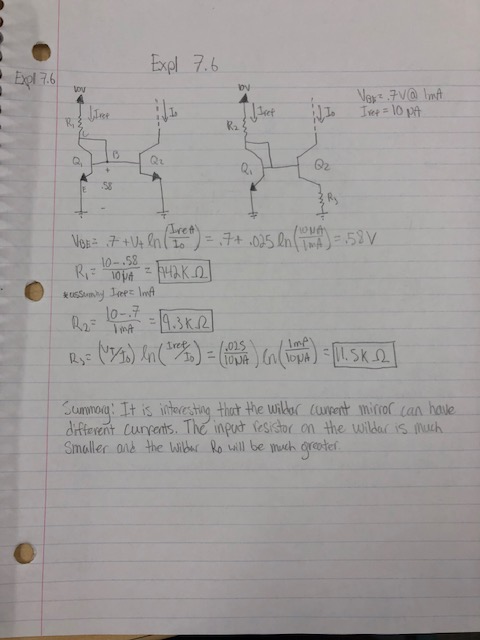 Expl 7.6
Expl 7.6
10V
10V
VBE = .7V @ 1mA
Iref = 10 μA
Iref
Io
Iref
Io
R1
R2
C
Q1
B
Q2
Q1
Q2
+
.58
E
-
R3
VBE = .7 + Vt ln(Iref/Io) = .7 + .025 ln(10μA/1mA) = .58V
R1 = 10-.58/10μA = 942K Ω
*assuming Iref = 1mA
R2 = 10-.7/1mA = 9.3K Ω
R3 = (VT/Io) ln(Iref/Io) = (.025/10μA) ln(1mA/10μA) = 11.5K Ω
Summary: It is interesting that the wildar current mirror can have
different currents. The input resistor on the wildar is much
smaller and the wildar Ro will be much greater